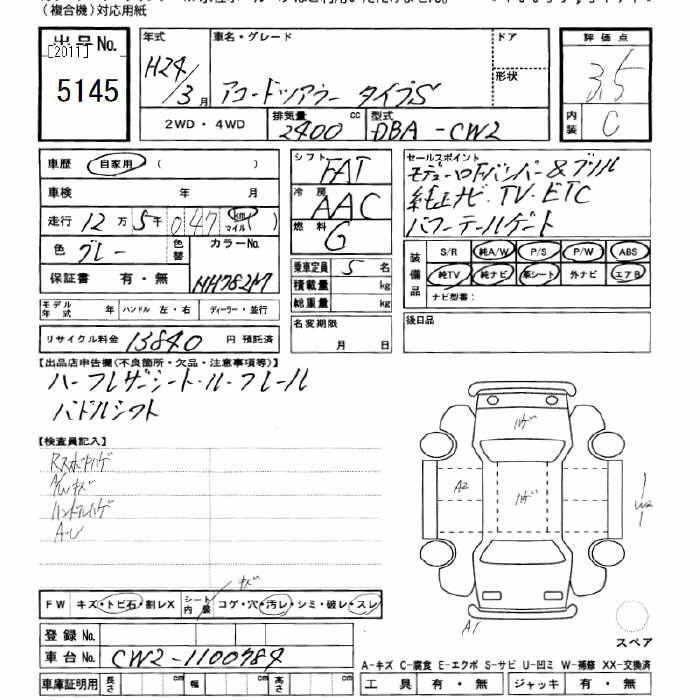 (複合機)対応用紙
出品No.
[2011]
5145
年式
H24/3月
車名・グレード
アコードツアラー タイプS
ドア
形状
評価点
3.5
内装
C
2WD・4WD
排気量
2400 cc
型式
DBA-CW2
車歴 自家用 ( )
車検 年 月
走行 12万5千047 km マイル
色 グレー
色替
カラーNo.
NH782M
保証書 有・無
モデル年式 年
ハンドル 左・右
ディーラー・並行
リサイクル料金 13840 円 預託済
シフト FAT
冷房 AAC
燃料 G
乗車定員 5 名
積載量 kg
総重量 kg
名変期限
月 日
セールスポイント
モデューロFバンパー&グリル
純正ナビ・TV・ETC
パワーテールゲート
装備品
S/R 純A/W P/S P/W ABS
純TV 純ナビ 革シート 外ナビ エアB
ナビ型番:
後日品
【出品店申告欄(不良箇所・欠品・注意事項等)】
ハーフレザーシート・ルーフレール
パドルシフト
【検査員記入】
A/Wキズ
ハンドルハゲ
ハゲ
A2
ハゲ
W2
A1
スペア
FW キズ・トビ石・割レX
シート 内装 コゲ・穴・汚レ・シミ・破レ・スレ
登録No.
車台No. CW2-1100784
車庫証明用 長さ cm 幅 cm 高さ cm
A-キズ C-腐食 E-エクボ S-サビ U-凹ミ W-補修 XX-交換済
工具 有・無 ジャッキ 有・無